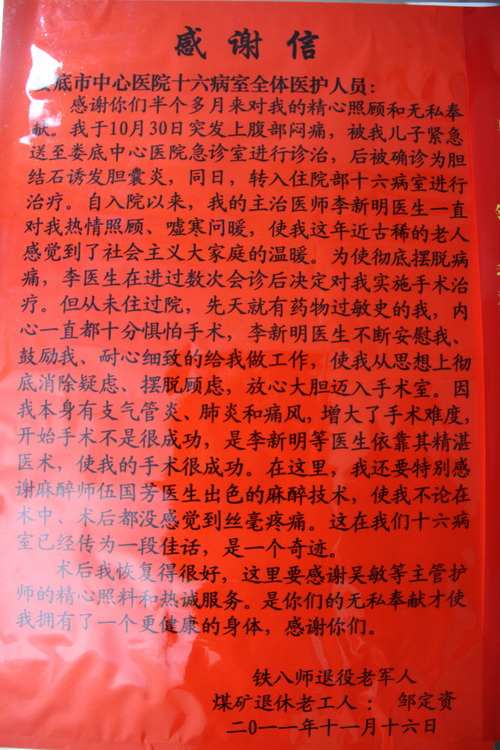 感谢信
娄底市中心医院十六病室全体医护人员：
感谢你们半个多月来对我的精心照顾和无私奉
献。我于10月30日突发上腹部闷痛，被我儿子紧急
送至娄底中心医院急诊室进行诊治，后被确诊为胆
结石诱发胆囊炎，同日，转入住院部十六病室进行
治疗。自入院以来，我的主治医师李新明医生一直
对我热情照顾、嘘寒问暖，使我这年近古稀的老人
感觉到了社会主义大家庭的温暖。为使彻底摆脱病
痛，李医生在进过数次会诊后决定对我实施手术治
疗。但从未住过院，先天就有药物过敏史的我，内
心一直都十分惧怕手术，李新明医生不断安慰我、
鼓励我、耐心细致的给我做工作，使我从思想上彻
底消除疑虑、摆脱顾虑，放心大胆迈入手术室。因
我本身有支气管炎、肺炎和痛风，增大了手术难度，
开始手术不是很成功，是李新明等医生依靠其精湛
医术，使我的手术很成功。在这里，我还要特别感
谢麻醉师伍国芳医生出色的麻醉技术，使我不论在
术中、术后都没感觉到丝毫疼痛。这在我们十六病
室已经传为一段佳话，是一个奇迹。
术后我恢复得很好，这里要感谢吴敏等主管护
师的精心照料和热诚服务。是你们的无私奉献才使
我拥有了一个更健康的身体，感谢你们。
铁八师退役老军人
煤矿退休老工人：邹定资
二0一一年十一月十六日